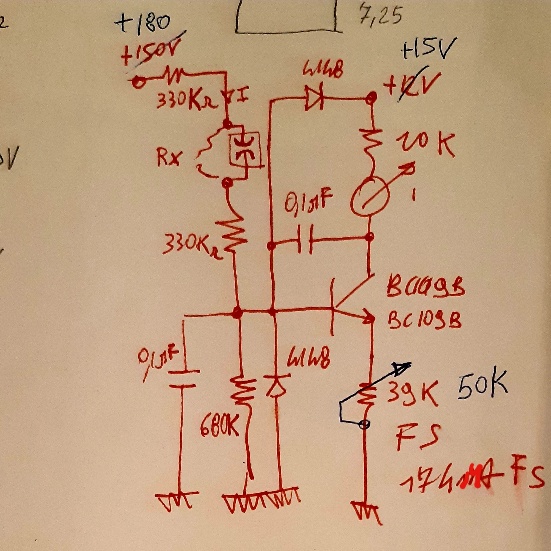 7,25
+180
+150V
330KΩ
I
4148
+15V
+12V
Rx
20K
0,1µF
330KΩ
BC109B
BC109B
0,1µF
4148
680K
39K 50K
FS
174mA FS